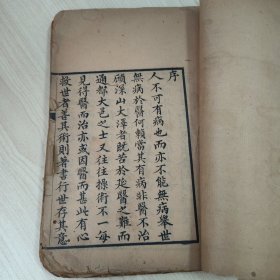 序
人不可有病也而亦不能無病舉世
無病於醫何賴當其有病非醫不治
顧深山大澤者既苦於延醫之難而
通都大邑之士又往往操術不一每
見得醫而治亦或因醫而甚此有心
救世者善其術則著書行世存其意